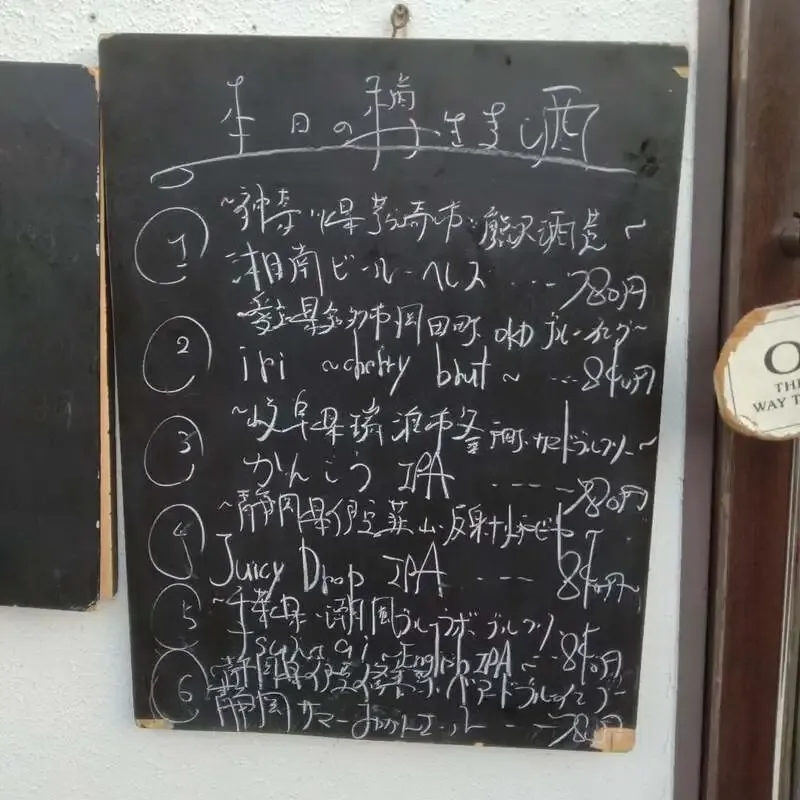 本日の樽生まし酒
1 ~神奈川県茅ヶ崎市・熊沢酒造~
湘南ビール ヘレス ・・・ 780円
2 愛知県知多市岡田町・OKDブルーイング~
iri ~cherry brut~ ・・・ 840円
3 ~岐阜県瑞浪市釜戸町・カマドブルワリー~
かんこう IPA ・・・・ 780円
4 ~静岡県伊豆韮山・反射炉ビヤ
Juicy Drop IPA ・・・ 840円
5 ~千葉県・潮風ブルーラボ・ブルワリー
~English IPA~ 840円
6 静岡県伊豆修善寺・ベアードブルーイング~
静岡サマーみかんエール ・・・ 780円
O
TH
WAY T